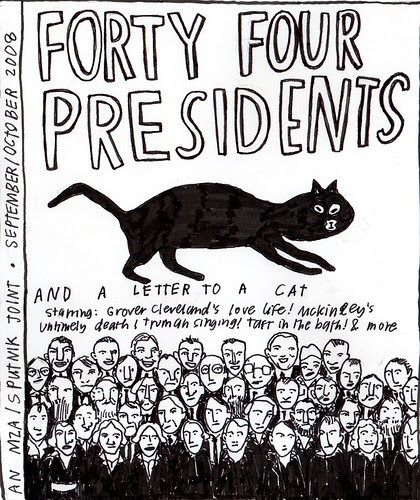 FORTY FOUR
PRESIDENTS
AND A LETTER TO A CAT
starring: Grover Cleveland's love life! McKinley's
untimely death! Truman singing! Taft in the bath! & more
AN NZA/SPUTNIK JOINT • SEPTEMBER/OCTOBER 2008